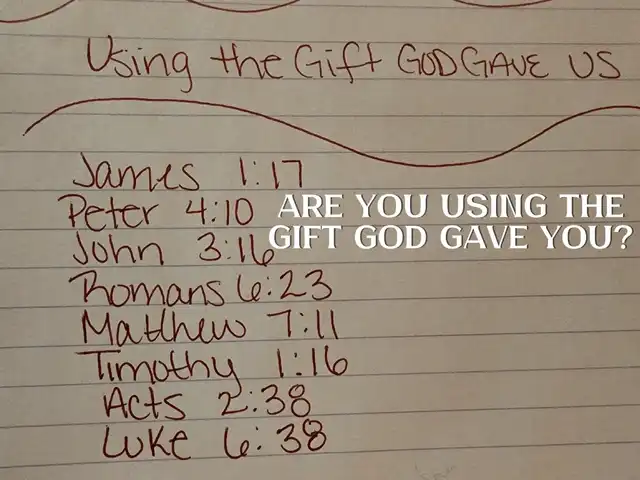 Using the Gift GOD GAVE US
James 1:17
Peter 4:10
John 3:16
Romans 6:23
Matthew 7:11
Timothy 1:16
Acts 2:38
Luke 6:38
ARE YOU USING THE
GIFT GOD GAVE YOU?